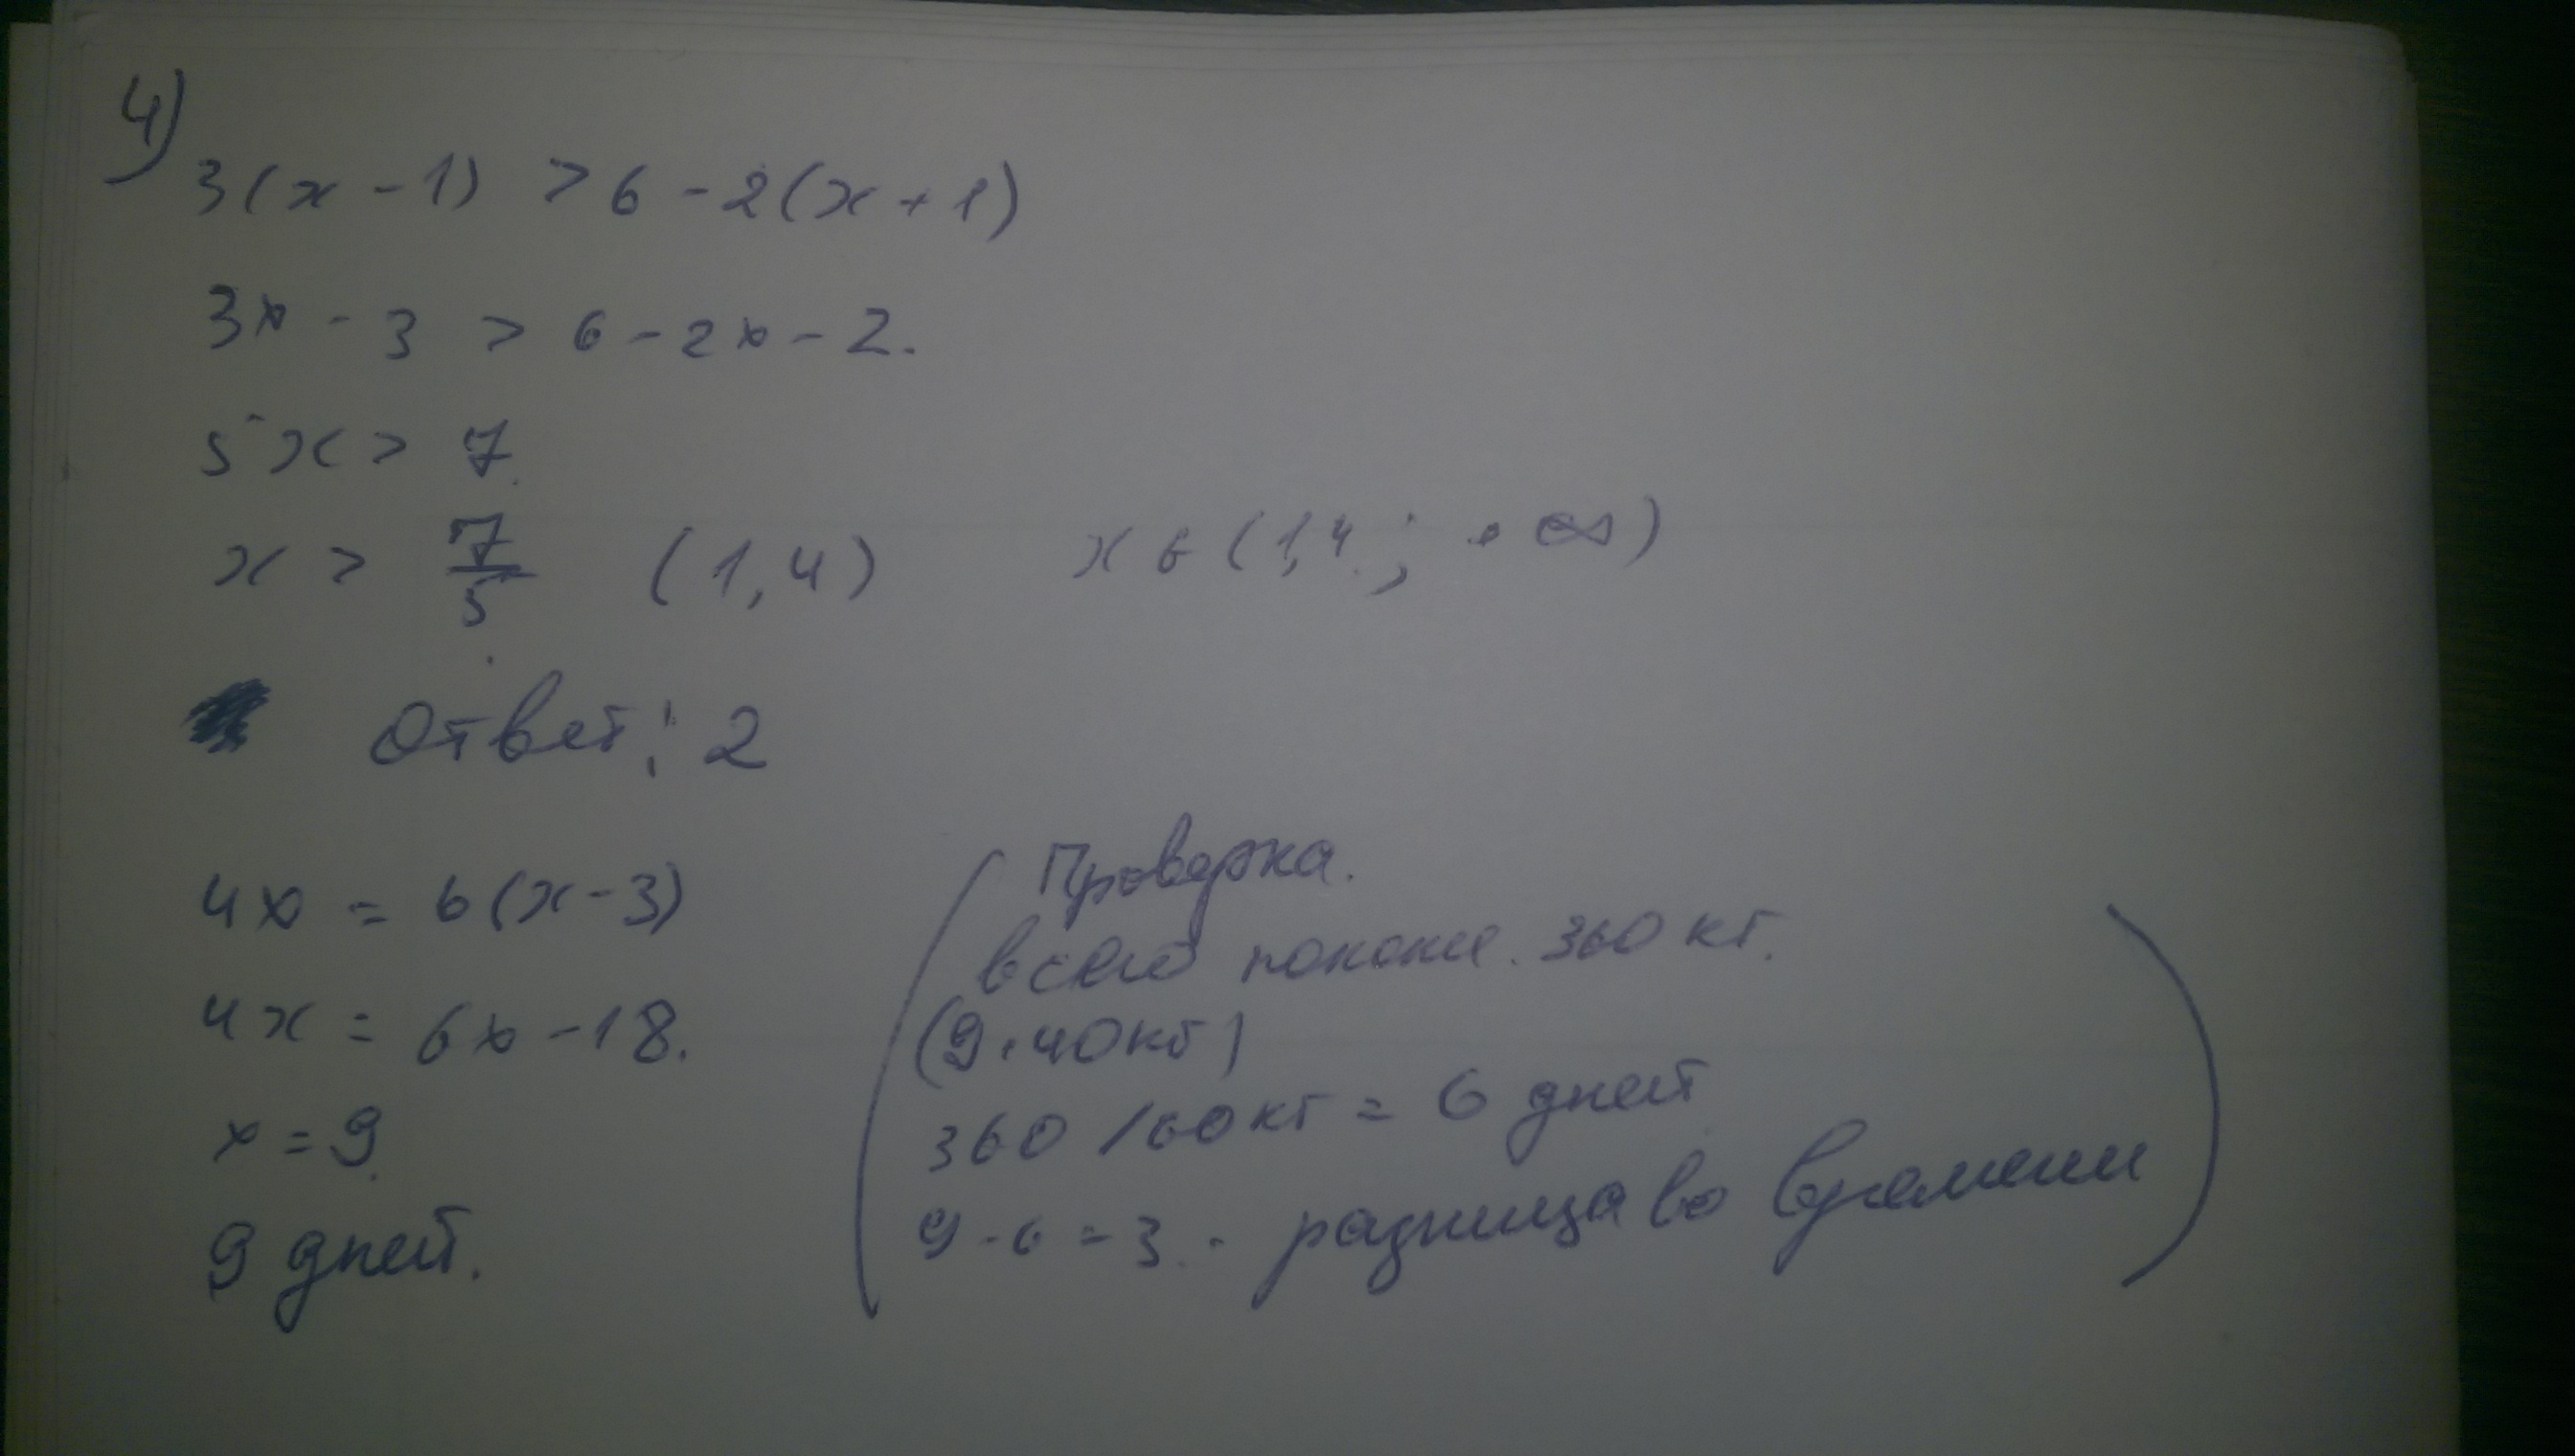 4)
3(x - 1) > 6 - 2(x + 1)
3x - 3 > 6 - 2x - 2.
5x > 7
x > 7/5 (1,4) x ∈ (1,4; +∞)
Ответ: 2
4x = 6(x - 3)
4x = 6x - 18.
x = 9
9 дней.
Проверка.
всего 360 кг.
(9·40кг)
360 / 60кг = 6 дней
9 - 6 = 3. - разница во времени